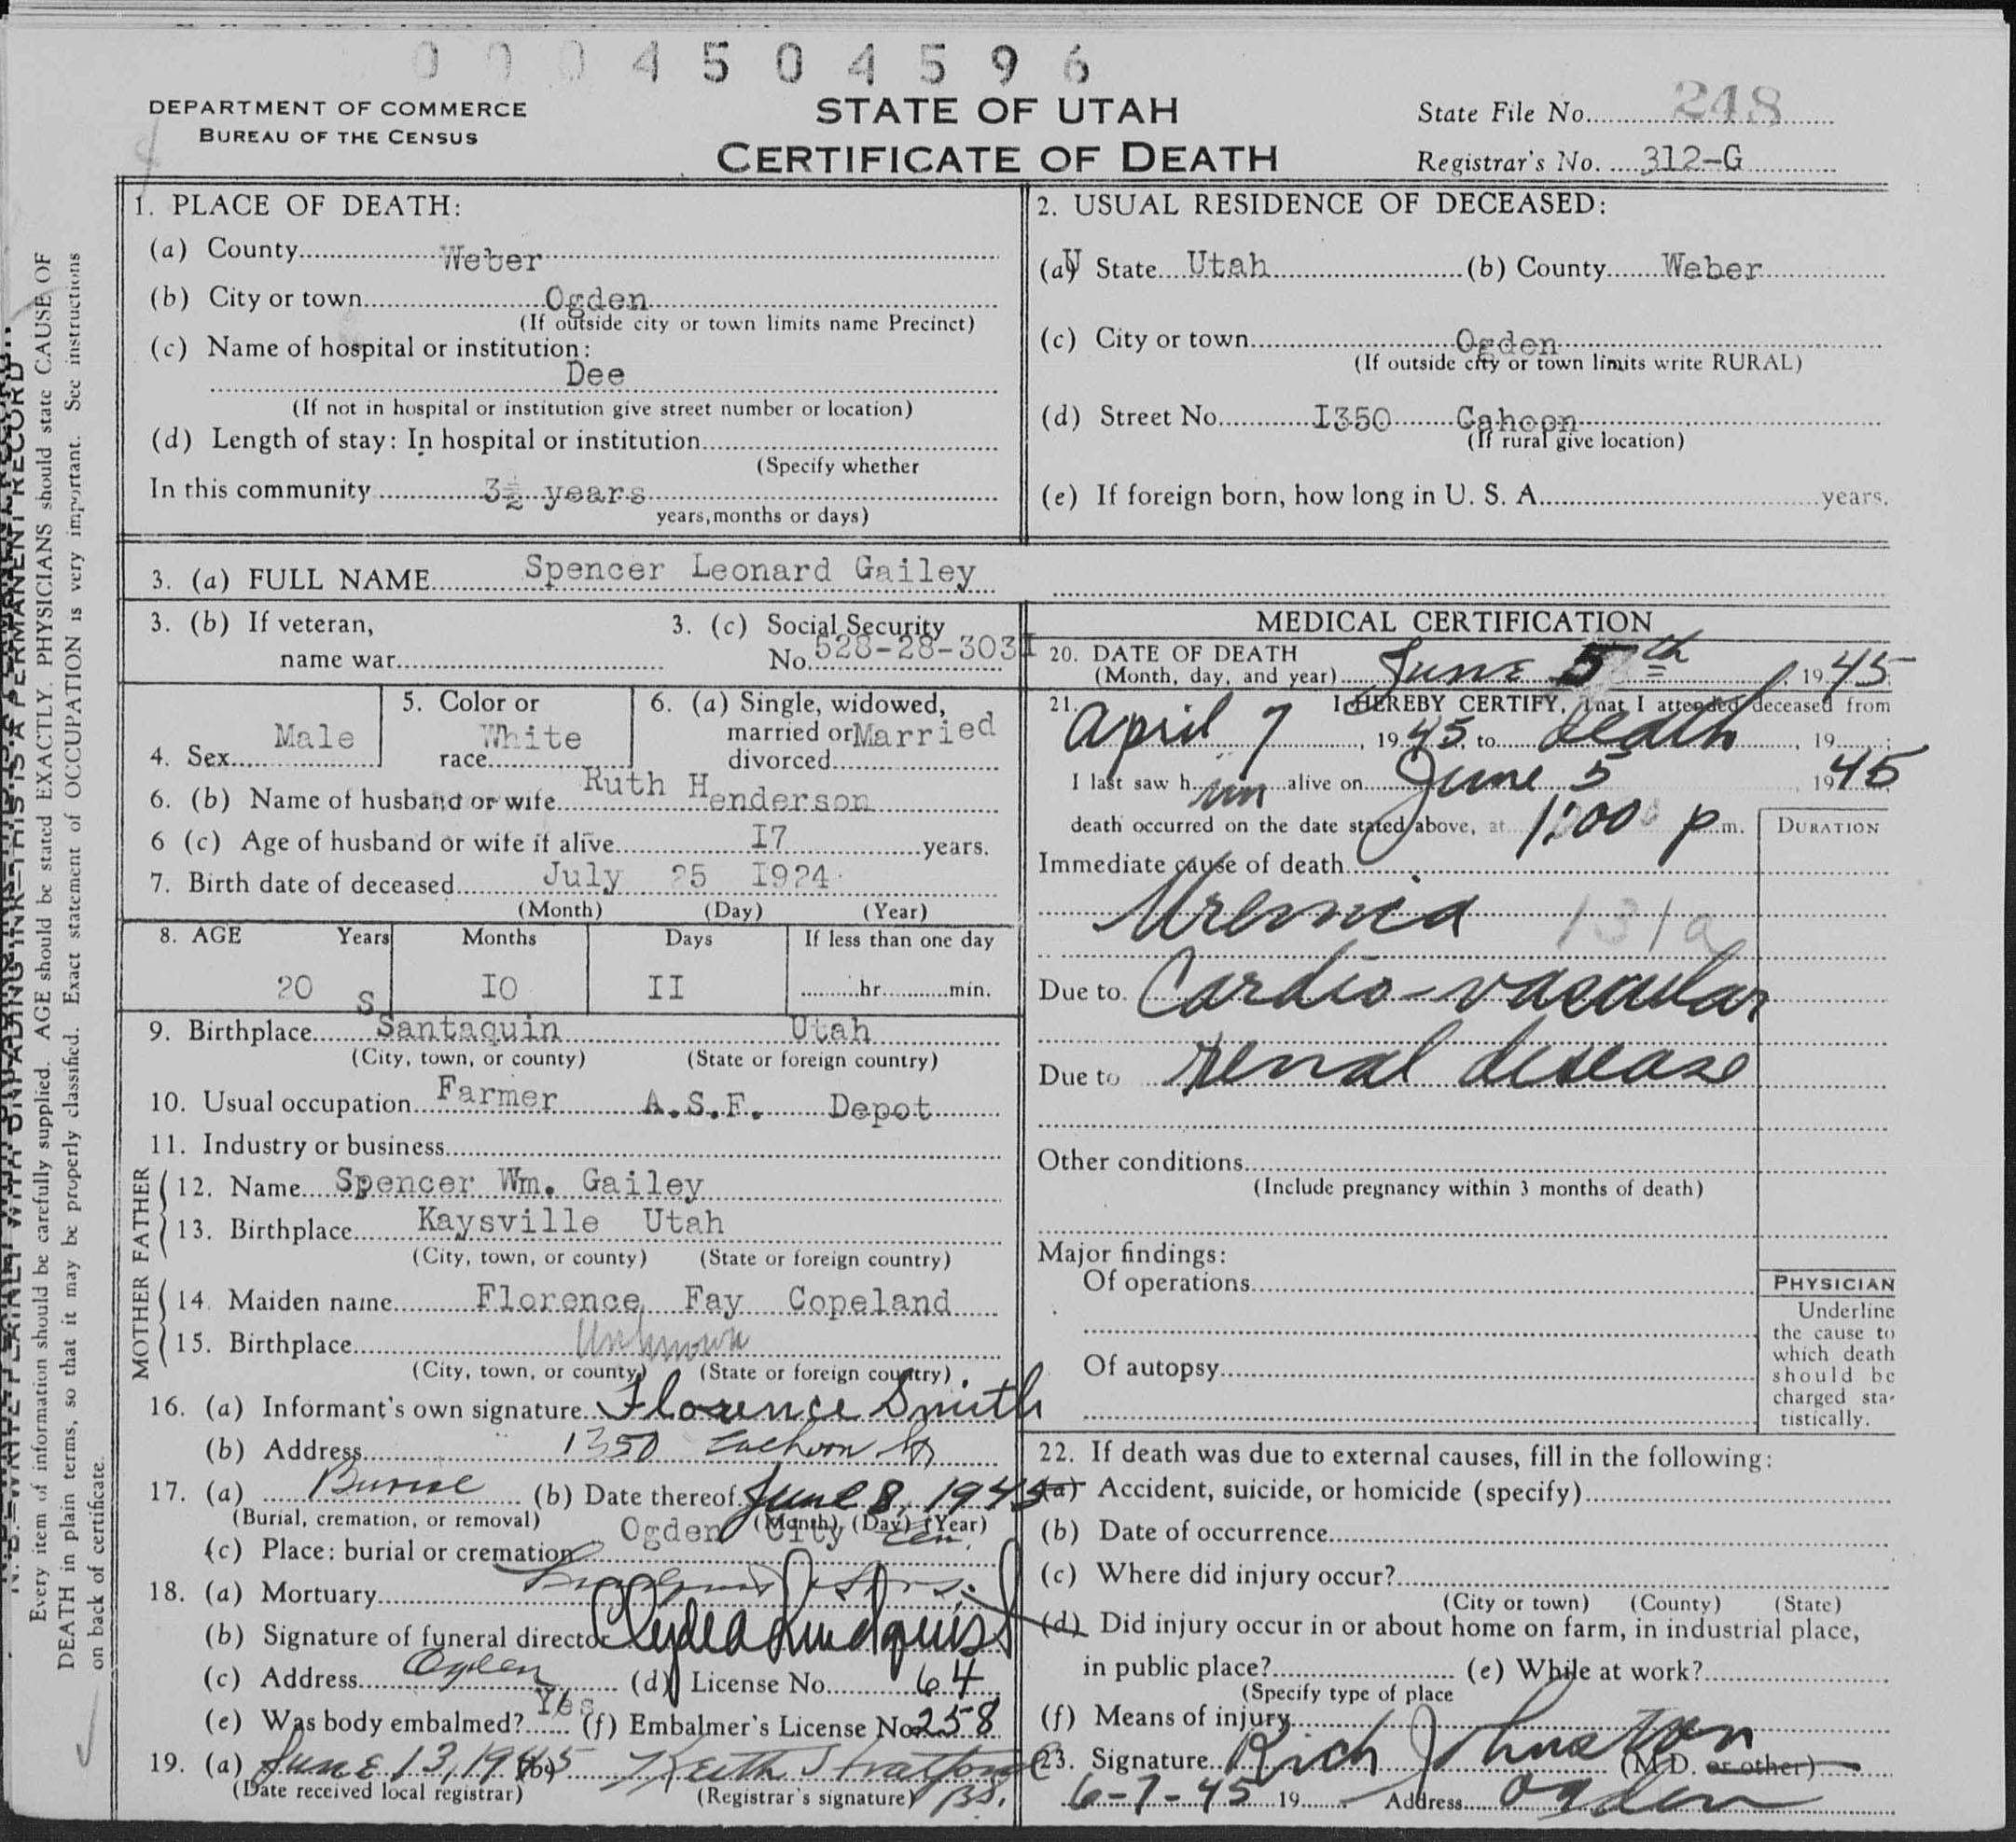 0 0 0 4 5 0 4 5 9 6
DEPARTMENT OF COMMERCE
BUREAU OF THE CENSUS
STATE OF UTAH
CERTIFICATE OF DEATH
State File No. 248
Registrar's No. 312-G
1. PLACE OF DEATH:
(a) County Weber
(b) City or town Ogden
(If outside city or town limits name Precinct)
(c) Name of hospital or institution:
Dee
(If not in hospital or institution give street number or location)
(d) Length of stay: In hospital or institution
(Specify whether
In this community 3½ years
years, months or days)
2. USUAL RESIDENCE OF DECEASED:
(a) State Utah (b) County Weber
(c) City or town Ogden
(If outside city or town limits write RURAL)
(d) Street No. I350 Cahoon
(If rural give location)
(e) If foreign born, how long in U. S. A. years.
3. (a) FULL NAME Spencer Leonard Gailey
3. (b) If veteran,
name war
3. (c) Social Security
No. 528-28-303I
4. Sex Male
5. Color or
race White
6. (a) Single, widowed,
married or Married
divorced
6. (b) Name of husband or wife Ruth Henderson
6 (c) Age of husband or wife if alive I7 years.
7. Birth date of deceased July 25 I924
(Month) (Day) (Year)
8. AGE Years Months Days If less than one day
20 IO II hr. min.
S
9. Birthplace Santaquin Utah
(City, town, or county) (State or foreign country)
10. Usual occupation Farmer A.S.F. Depot
11. Industry or business
FATHER
12. Name Spencer Wm. Gailey
13. Birthplace Kaysville Utah
(City, town, or county) (State or foreign country)
MOTHER
14. Maiden name Florence Fay Copeland
15. Birthplace Unknown
(City, town, or county) (State or foreign country)
16. (a) Informant's own signature Florence Smith
(b) Address 1350
17. (a) Burial (b) Date thereof June 8, 1945
(Burial, cremation, or removal) (Month) (Day) (Year)
(c) Place: burial or cremation Ogden City Cem.
18. (a) Mortuary
(b) Signature of funeral director Clyde A Lindquist
(c) Address Ogden (d) License No. 64
(e) Was body embalmed? Yes (f) Embalmer's License No. 258
19. (a) June 13, 1945 (b) Keith Stratford
(Date received local registrar) (Registrar's signature) BS.
MEDICAL CERTIFICATION
20. DATE OF DEATH
(Month, day, and year) June 5th, 1945
21. I HEREBY CERTIFY, That I attended deceased from
April 7, 1945, to death, 19 ;
I last saw him alive on June 5 1945
death occurred on the date stated above, at 1:00 p m.
DURATION
Immediate cause of death
Uremia 131a
Due to Cardio-vascular
Due to renal disease
Other conditions
(Include pregnancy within 3 months of death)
Major findings:
Of operations
Of autopsy
PHYSICIAN
Underline
the cause to
which death
should be
charged sta-
tistically.
22. If death was due to external causes, fill in the following:
(a) Accident, suicide, or homicide (specify)
(b) Date of occurrence
(c) Where did injury occur?
(City or town) (County) (State)
(d) Did injury occur in or about home on farm, in industrial place,
in public place? (e) While at work?
(Specify type of place
(f) Means of injury
23. Signature Rich Johnston (M.D. or other)
6-7-45 19 Address Ogden
N. B.—WRITE PLAINLY WITH UNFADING INK—THIS IS A PERMANENT RECORD
Every item of information should be carefully supplied. AGE should be stated EXACTLY. PHYSICIANS should state CAUSE OF
DEATH in plain terms, so that it may be properly classified. Exact statement of OCCUPATION is very important. See instructions
on back of certificate.